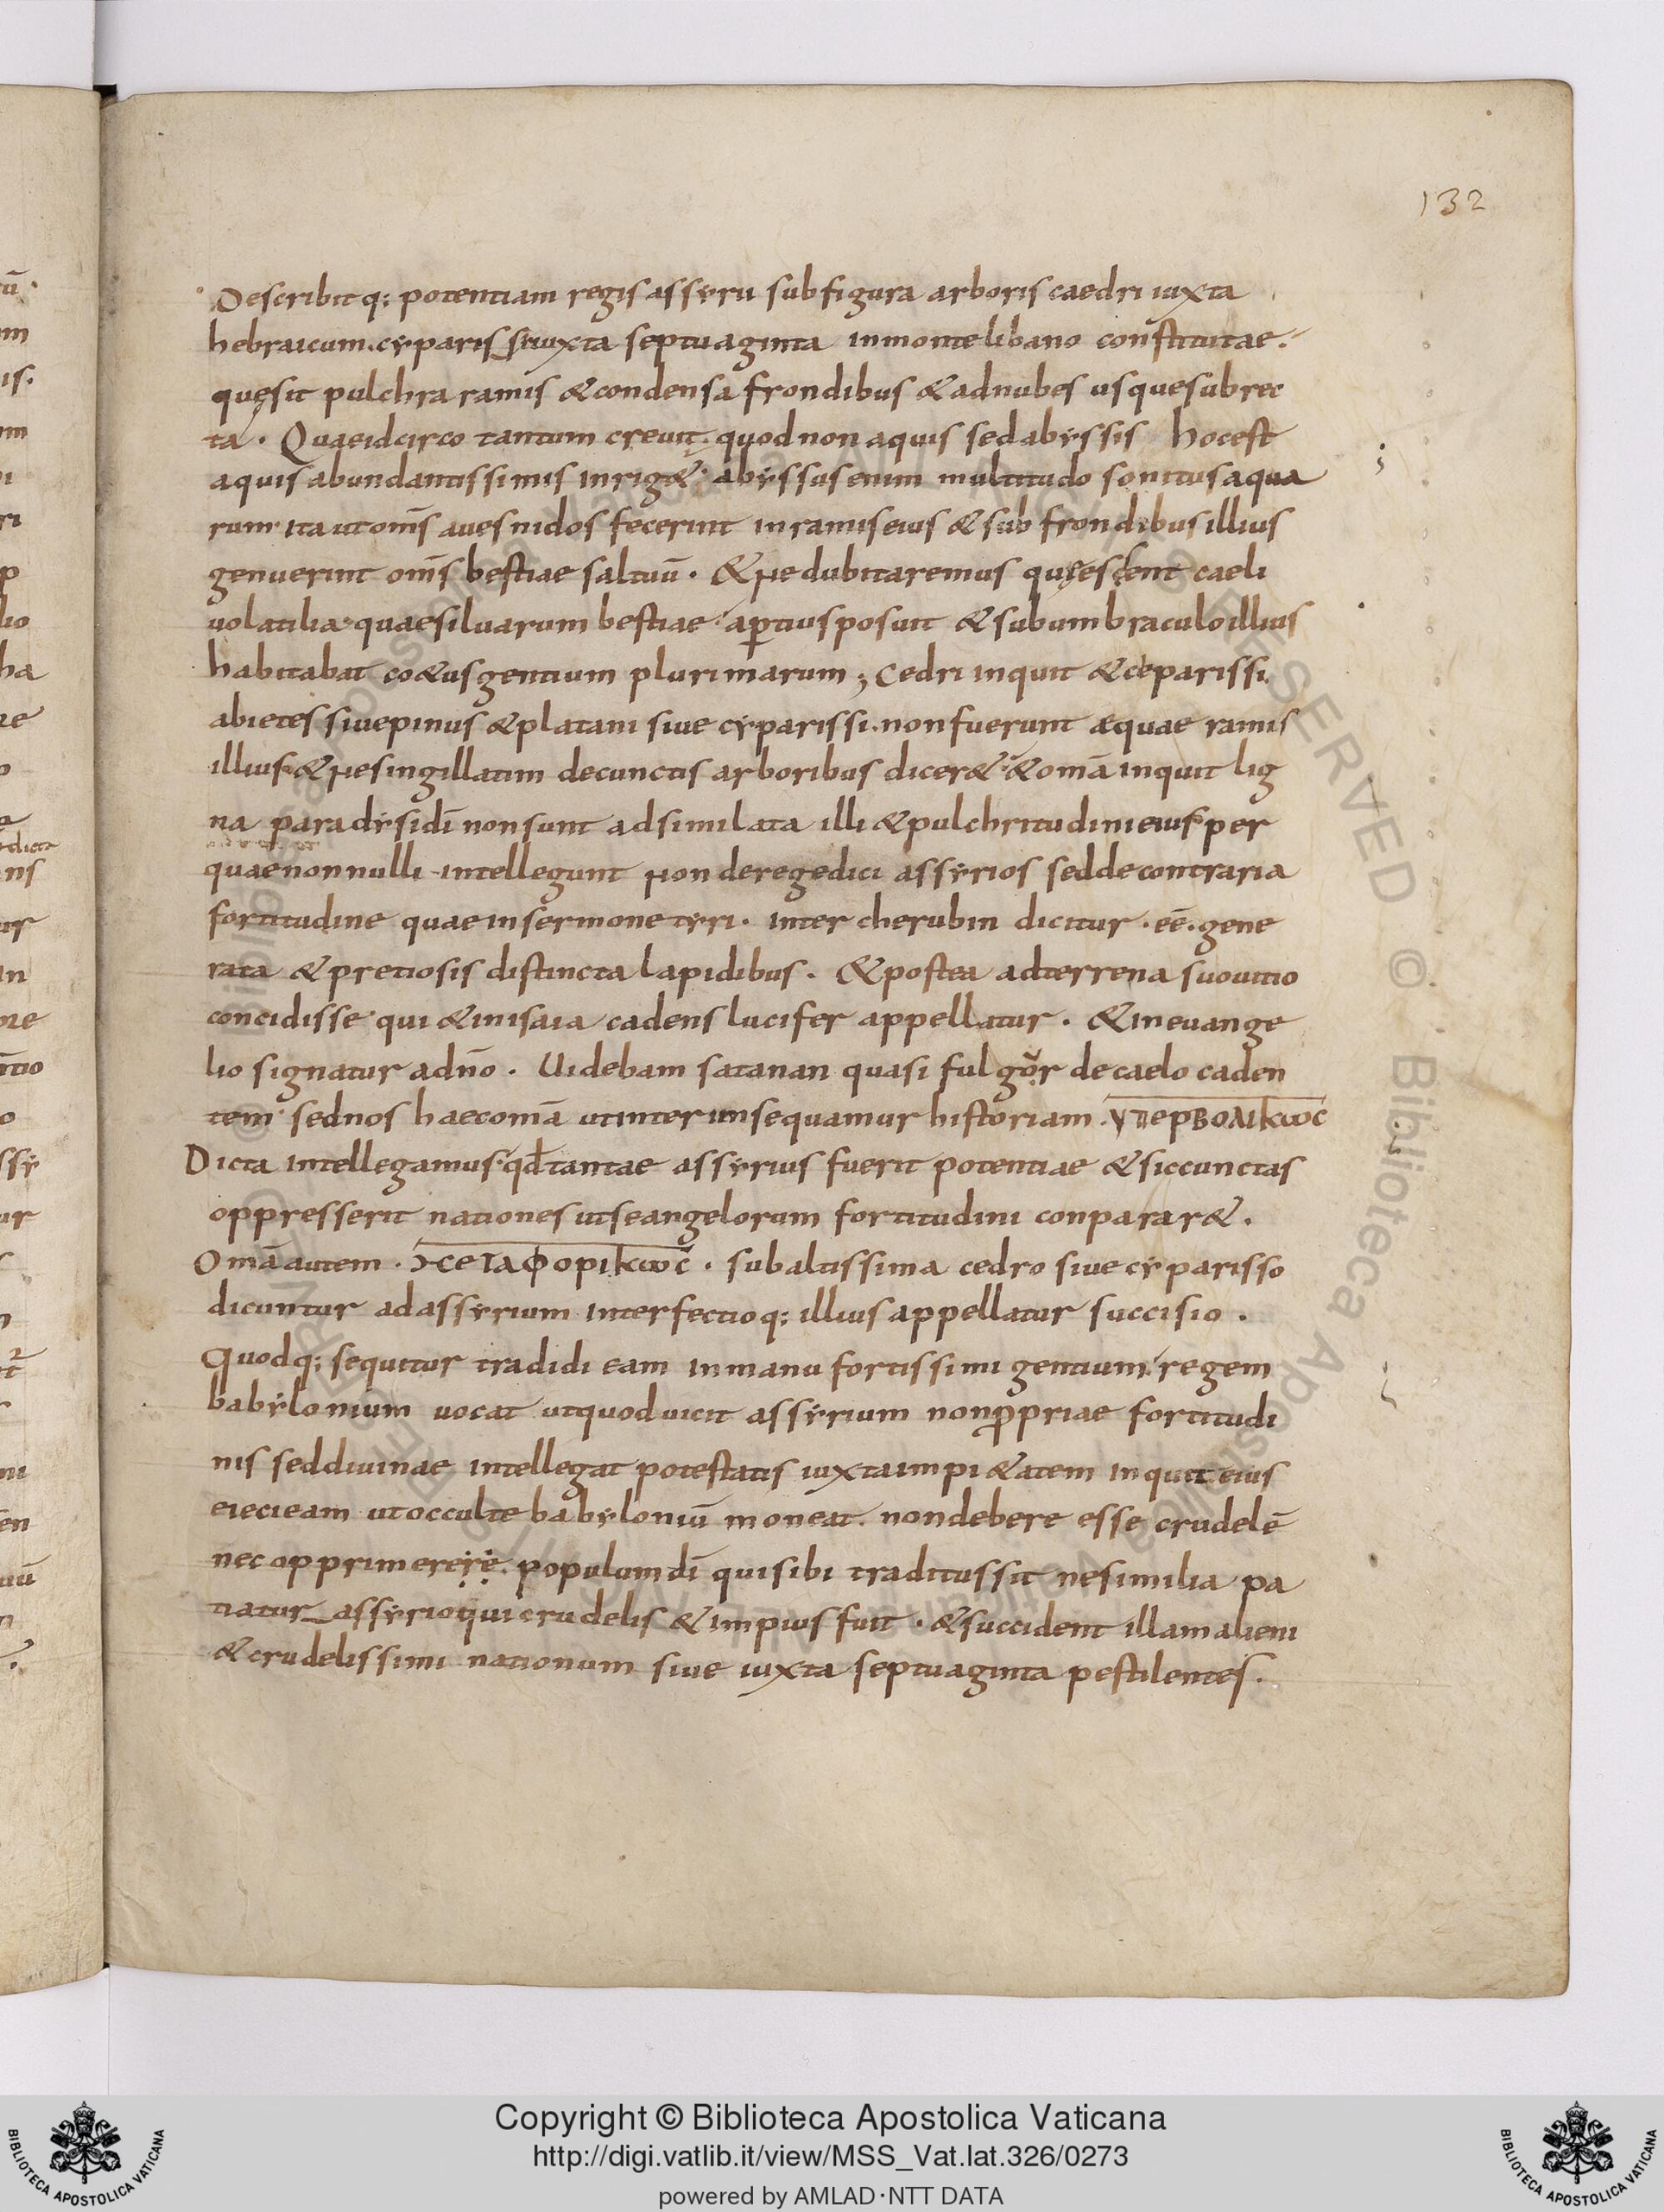 132
Describitq; potentiam regis assyrii sub figura arboris caedri iuxta
hebraicum. cyparissi iuxta septuaginta in monte libano constitutae.
quę sit pulchra ramis & condensa frondibus & ad nubes usque subrec
ta. Quae idcirco tantum creuit. quod non aquis sed abyssis hoc est
aquis abundantissimis inrig&. abyssus enim multitudo sonitus aqua
rum. ita ut om̄s aues nidos fecerint in ramis eius & sub frondibus illius
genuerint om̄s bestiae saltuū. & ne dubitaremus quę essent caeli
uolatilia. quae siluarum bestiae. aꝑtius posuit & sub umbraculo illius
habitabat co&us gentium plurimarum; Cedri inquit & ceparissi.
abietes siue pinus & platani siue cyparissi. non fuerunt aequae ramis
illius. & ne singillatim de cunctis arboribus dicer&. & omā inquit lig
na paradysi dī non sunt adsimilata illi & pulchritudini eius. per
quae nonnulli intellegunt non de rege dici assyrios sed de contraria
fortitudine quae in sermone tyri. inter cherubin dicitur. eē. gene
rata & pretiosis distincta lapidibus. & postea ad terrena suo uitio
concidisse. qui & in isaia cadens lucifer appellatur. & in euange
lio signatur a dn̄o. Uidebam satanan quasi fulgor de caelo caden
tem. sed nos haec omā ut interim sequamur historiam. ΥΠΕΡΒΟΛΙΚΩC
Dicta intellegamus. qd̄ tantae assyrius fuerit potentiae & sic cunctas
oppresserit nationes ut se angelorum fortitudini conparar&.
Omā autem. ϺΕΤΑΦΟΡΙΚΩC. sub altissima cedro siue cyparisso
dicuntur ad assyrium interfectioq; illius appellatur succisio.
Quodq; sequitur tradidi eam in manu fortissimi gentium. regem
babylonium uocat ut quod uicit assyrium non ꝓpriae fortitudi
nis sed diuinae intellegat potestatis iuxta impi&atem inquit eius
eieci eam ut occulte babyloniū moneat. non debere esse crudelē
nec opprimerere. populum dī qui sibi traditus sit ne similia pa
tiatur assyrio qui crudelis & impius fuit. & succident illam alieni
& crudelissimi nationum siue iuxta septuaginta pestilentes.
Copyright © Biblioteca Apostolica Vaticana
http://digi.vatlib.it/view/MSS_Vat.lat.326/0273
powered by AMLAD·NTT DATA
BIBLIOTECA APOSTOLICA VATICANA
BIBLIOTECA APOSTOLICA VATICANA